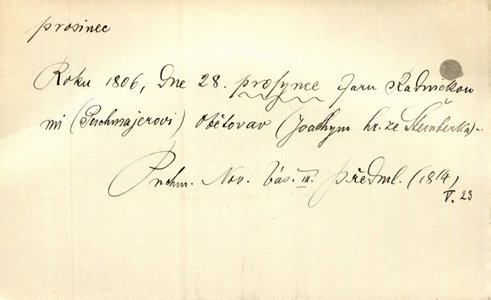 prosinec
Roku 1806, Dne 28. prosynce faru Radnickou
mi (Puchmajerovi) obětovav (Joachym hr. ze Šternberka)..
Puchm. Nov. bás. III. předml. (1814)
V. 23